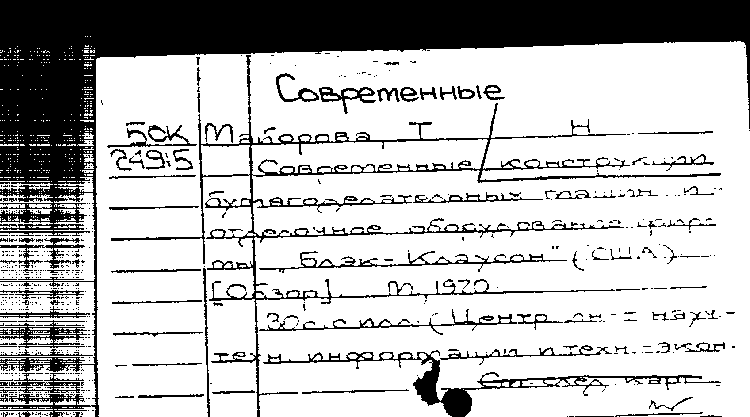 Современные
БОК Майорова, Т Н
249:5 Современные конструкции
бумагоделательных машин и
отделочное оборудование фир-
мы „Блэк-Клаусон" (США)
[Обзор]. М, 1970
30с. с илл. (Центр. ин-т науч-
техн. информации и техн.-экон.
См след карт